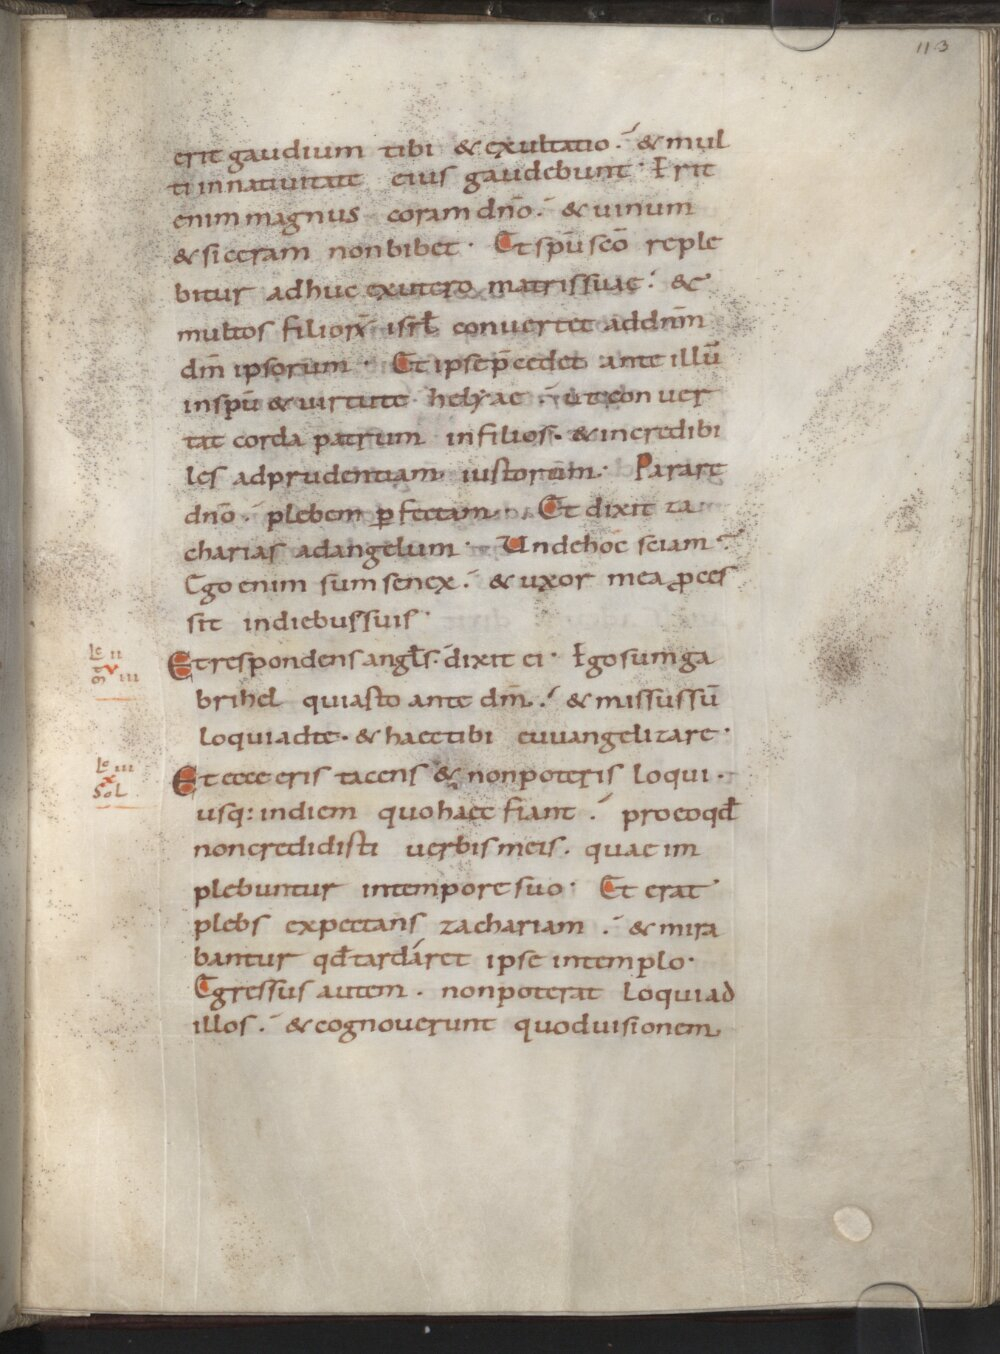 113
erit gaudium tibi & exultatio. & mul
ti innativitate eius gaudebunt. Erit
enim magnus coram dño. & uinum
& siceram non bibet. Et spũ scõ reple
bitur adhuc exutero matris suae. &
multos filiorũ isrł convertet ad dñm
dm̃ ipsorum. Et ipse p̄cedet ante illũ
in spũ & virtute helyae. ut conver
tat corda patrum in filios. & incredibi
les ad prudentiam iustorum. Parare
dño. plebem ꝑfectam. Et dixit za
charias ad angelum. Unde hoc sciam.
Ego enim sum senex. & uxor mea ꝓces
sit in diebus suis.
Lc II
VIII
Et respondens angl̃s. dixit ei. Ego sum ga
brihel qui asto ante dm̃. & missus sũ
loqui ad te. & haec tibi euuangelizare.
Lc III
X
Sol
Et ecce eris tacens & non poteris loqui.
usq: in diem quo haec fiant. pro eo qđ
non credidisti verbis meis. quae im
plebuntur in tempore suo. Et erat
plebs expectans zachariam. & mira
bantur qđ tardáret ipse in templo.
Egressus autem. non poterat loqui ad
illos. & cognoverunt quod uisionem